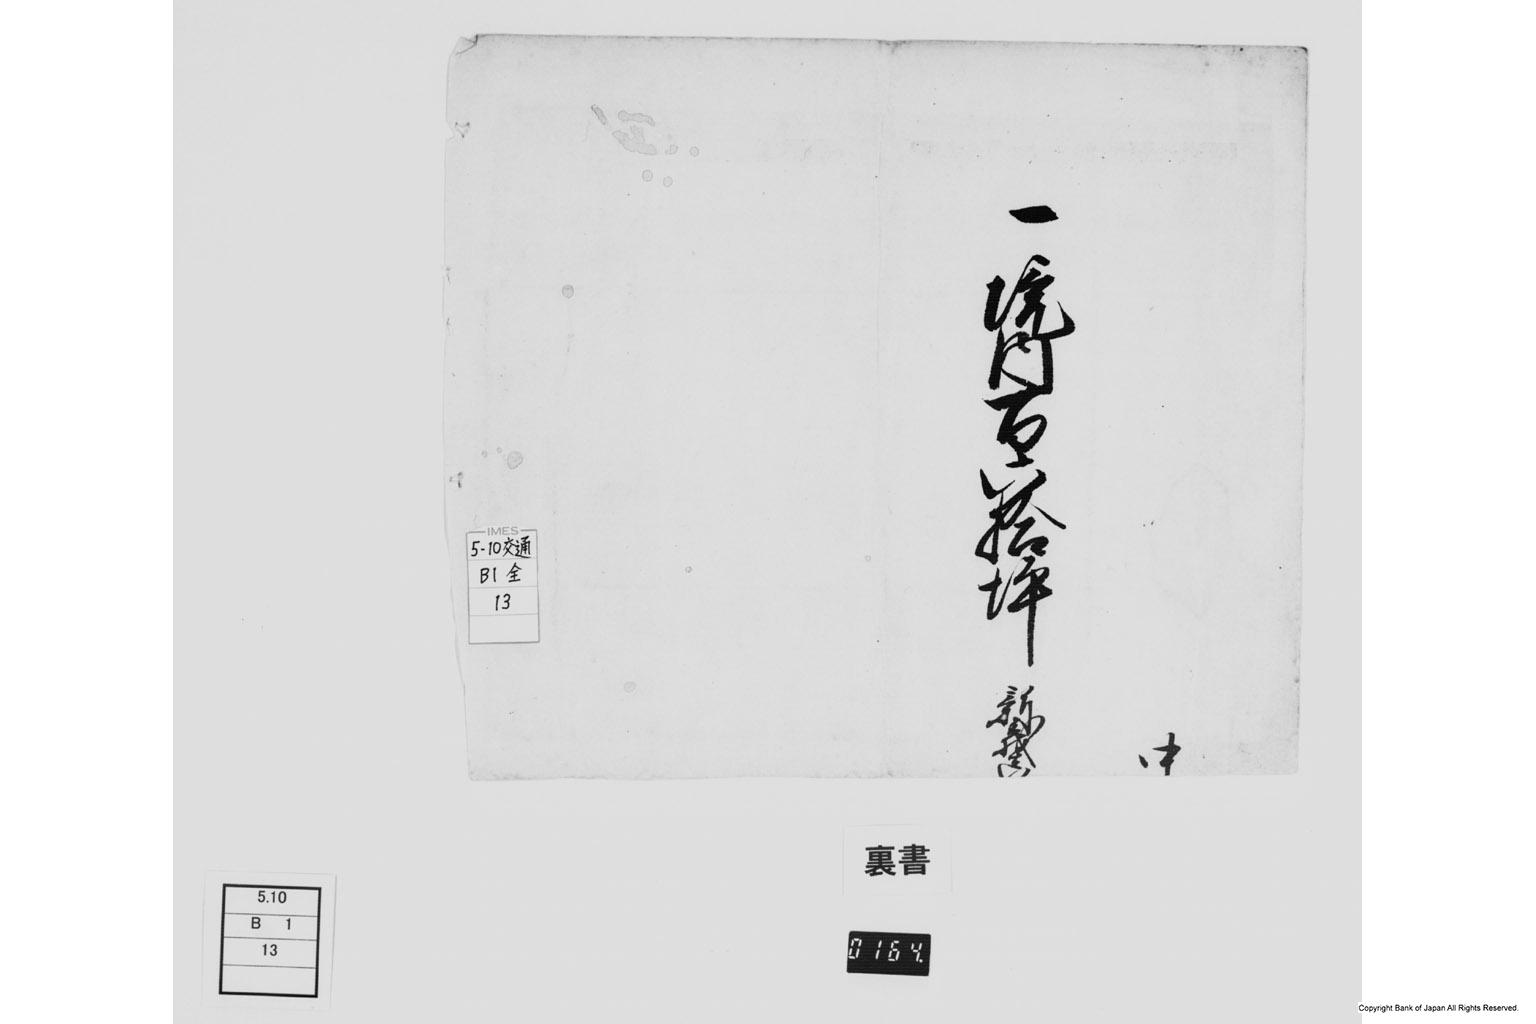 一 境内百六拾坪
IMES
5-10交通
B1 全
13
裏書
5.10
B 1
13
0164.
Copyright Bank of Japan All Rights Reserved.